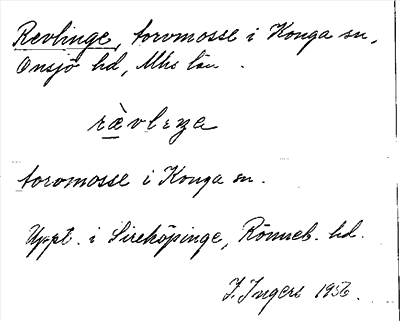 Revlinge, torvmosse i Konga sn,
Onsjö hd, Mhs län.
rὲvlɩŋa
torvmosse i Konga sn.
Uppt. i Sireköpinge, Rönneb. hd.
I. Ingers 1956.